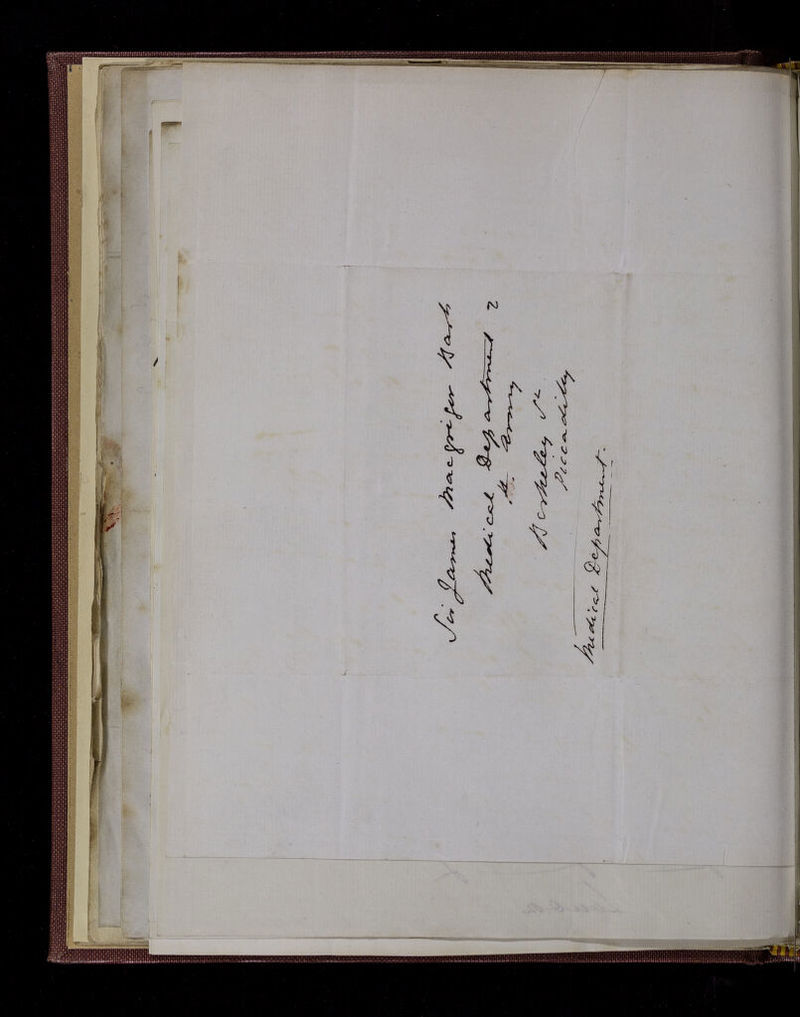 Sir James Macgrigor Bart
Medical Department
Army
Berkeley St
Piccadilly
Medical Department.